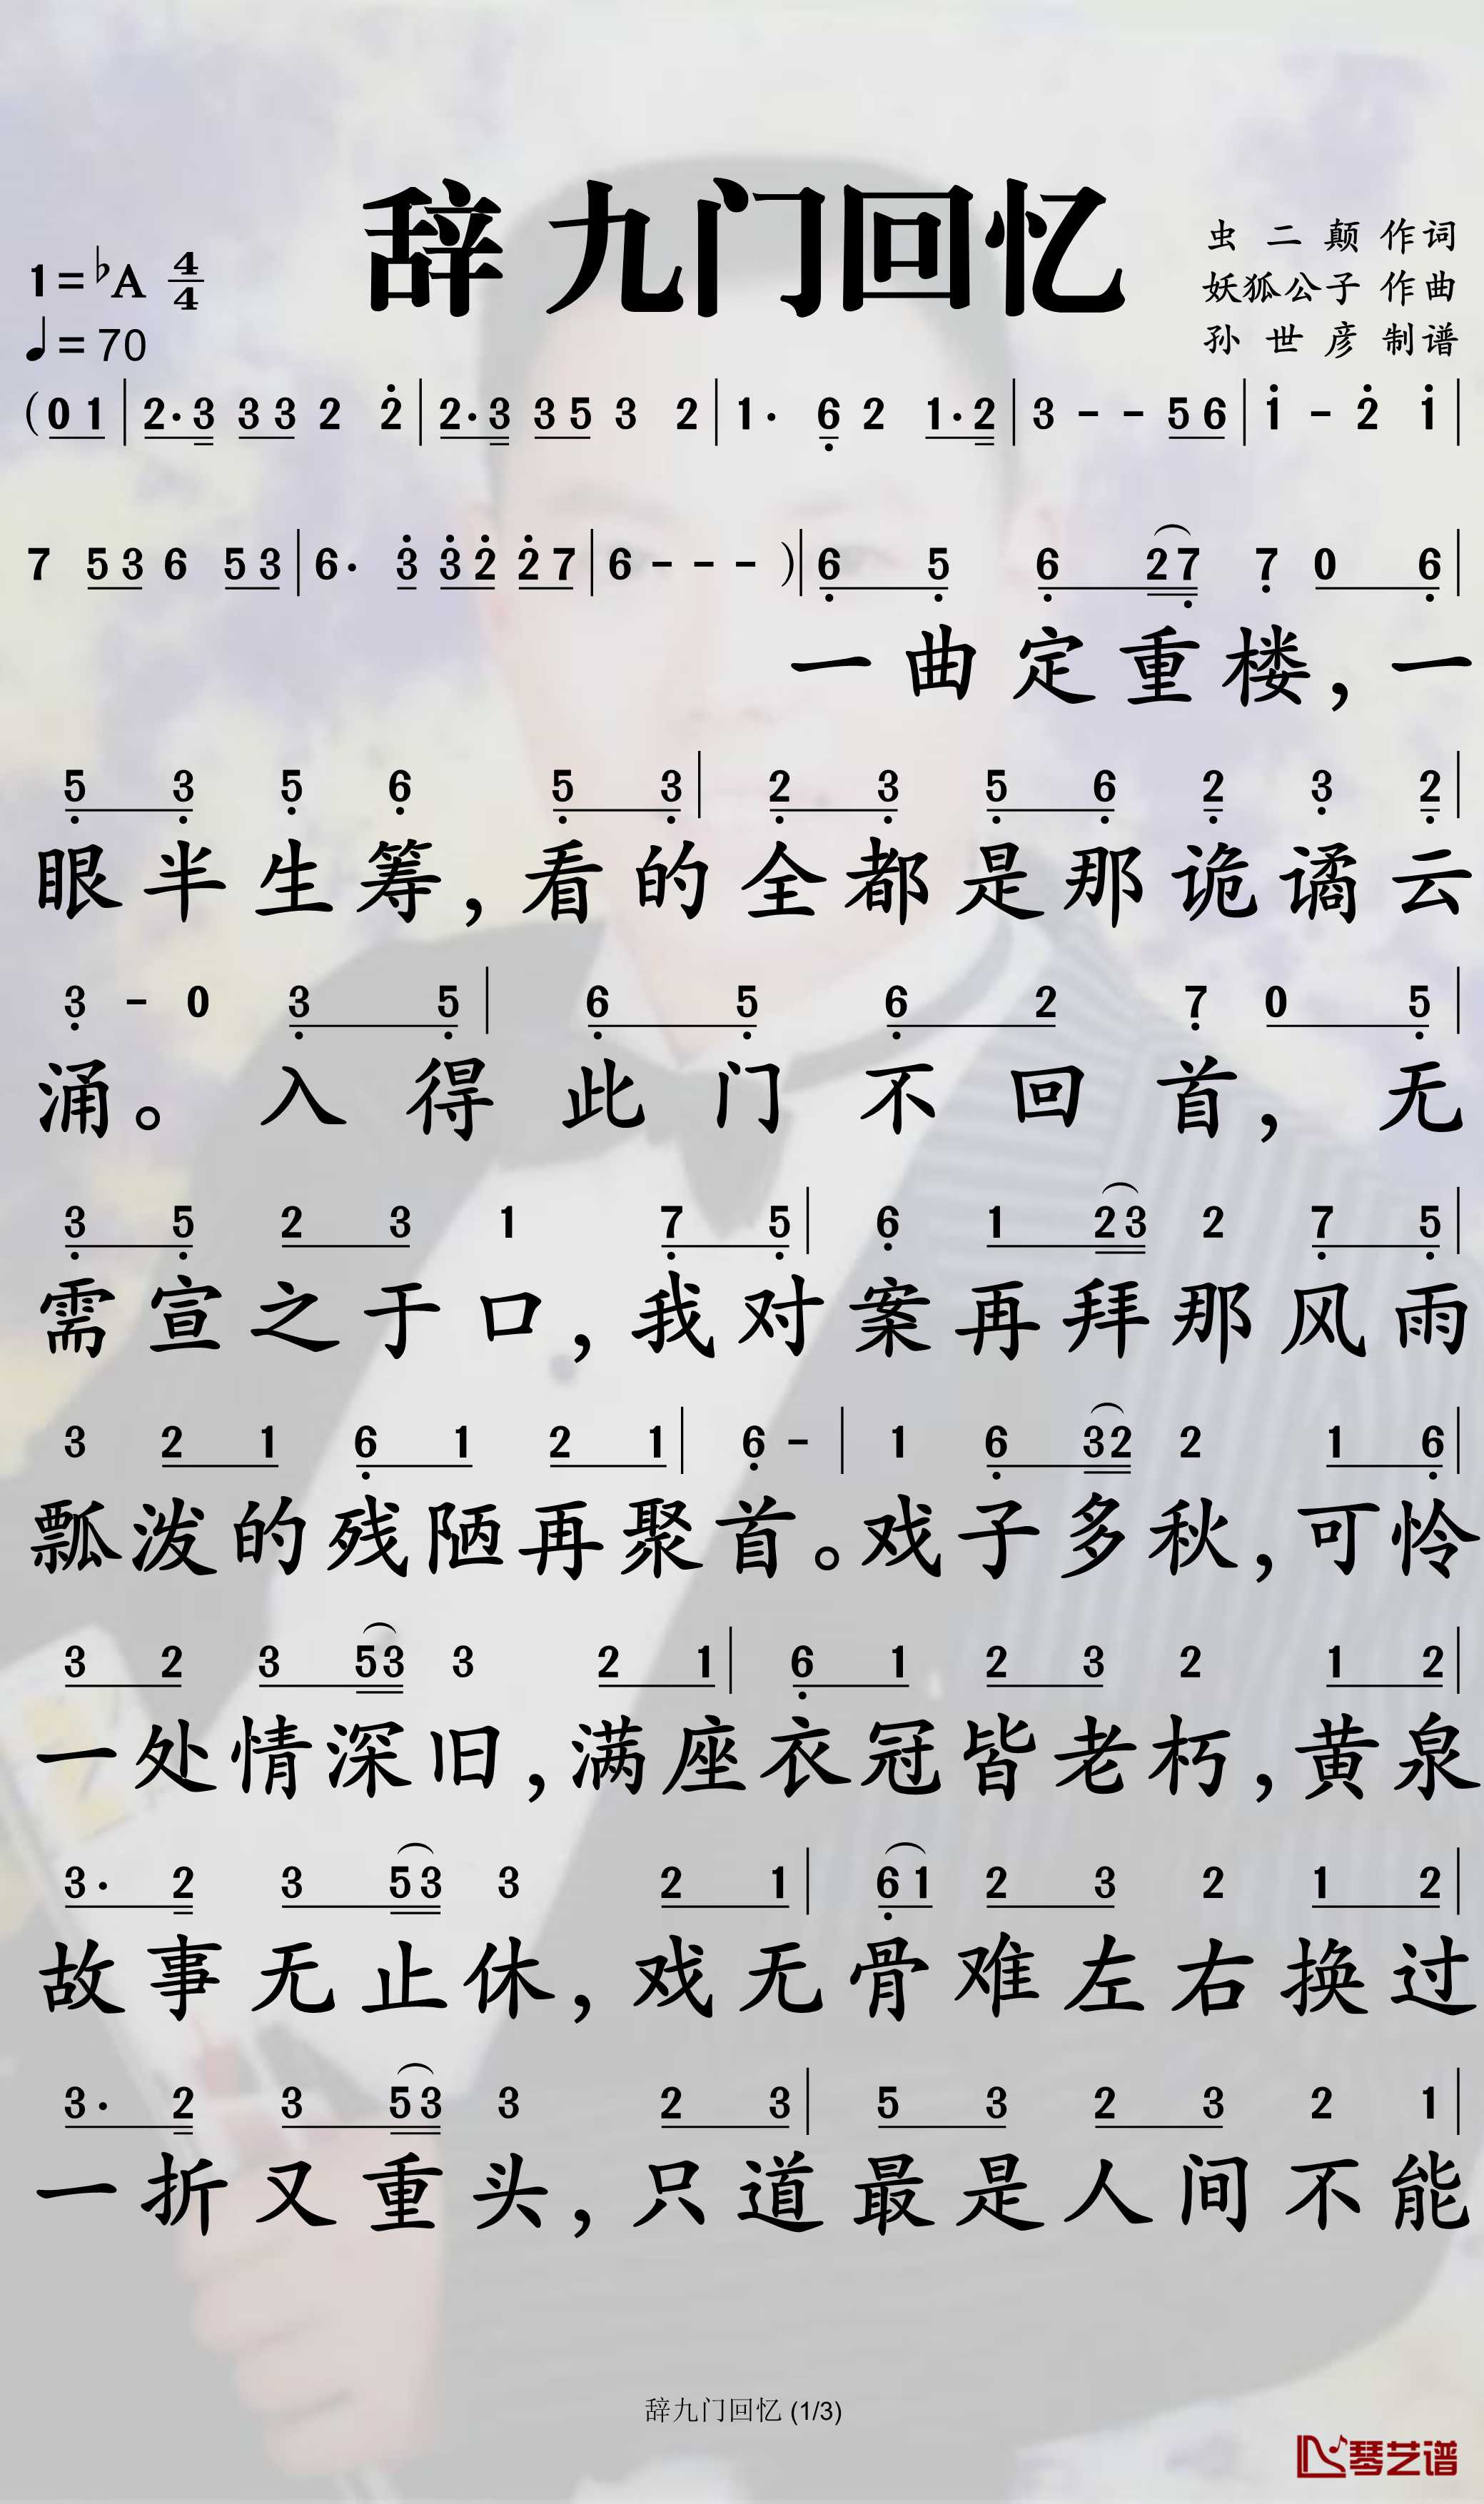 辞九门回忆
虫二颠 作词
1=♭A 4/4
妖狐公子 作曲
♩=70
孙世彦 制谱
(0 1 | 2· 3 3 3 2 2̇ | 2· 3 3 5 3 2 | 1· 6̣ 2 1· 2 | 3 - - 5 6 | 1̇ - 2̇ 1̇ |
7 5 3 6 5 3 | 6· 3̇ 3̇ 2̇ 2̇ 7 | 6 - - - )| 6̣ 5̣ 6̣ 2 7̣ 7̣ 0 6̣ |
一曲定重楼，一
5̣ 3̣ 5̣ 6̣ 5̣ 3̣ | 2̣ 3̣ 5̣ 6̣ 2̣ 3̣ 2̣ |
眼半生筹，看的全都是那诡谲云
3̣ - 0 3̣ 5̣ | 6̣ 5̣ 6̣ 2 7̣ 0 5̣ |
涌。入得此门不回首，无
3̣ 5̣ 2 3 1 7̣ 5̣ | 6̣ 1 2 3 2 7̣ 5̣ |
需宣之于口，我对案再拜那风雨
3 2 1 6̣ 1 2 1 | 6̣ - | 1 6̣ 3 2 2 1 6̣ |
瓢泼的残陋再聚首。戏子多秋，可怜
3 2 3 5 3 3 2 1 | 6̣ 1 2 3 2 1 2 |
一处情深旧，满座衣冠皆老朽，黄泉
3· 2 3 5 3 3 2 1 | 6̣ 1 2 3 2 1 2 |
故事无止休，戏无骨难左右换过
3· 2 3 5 3 3 2 3 | 5 3 2 3 2 1 |
一折又重头，只道最是人间不能
辞九门回忆 (1/3)
琴艺谱